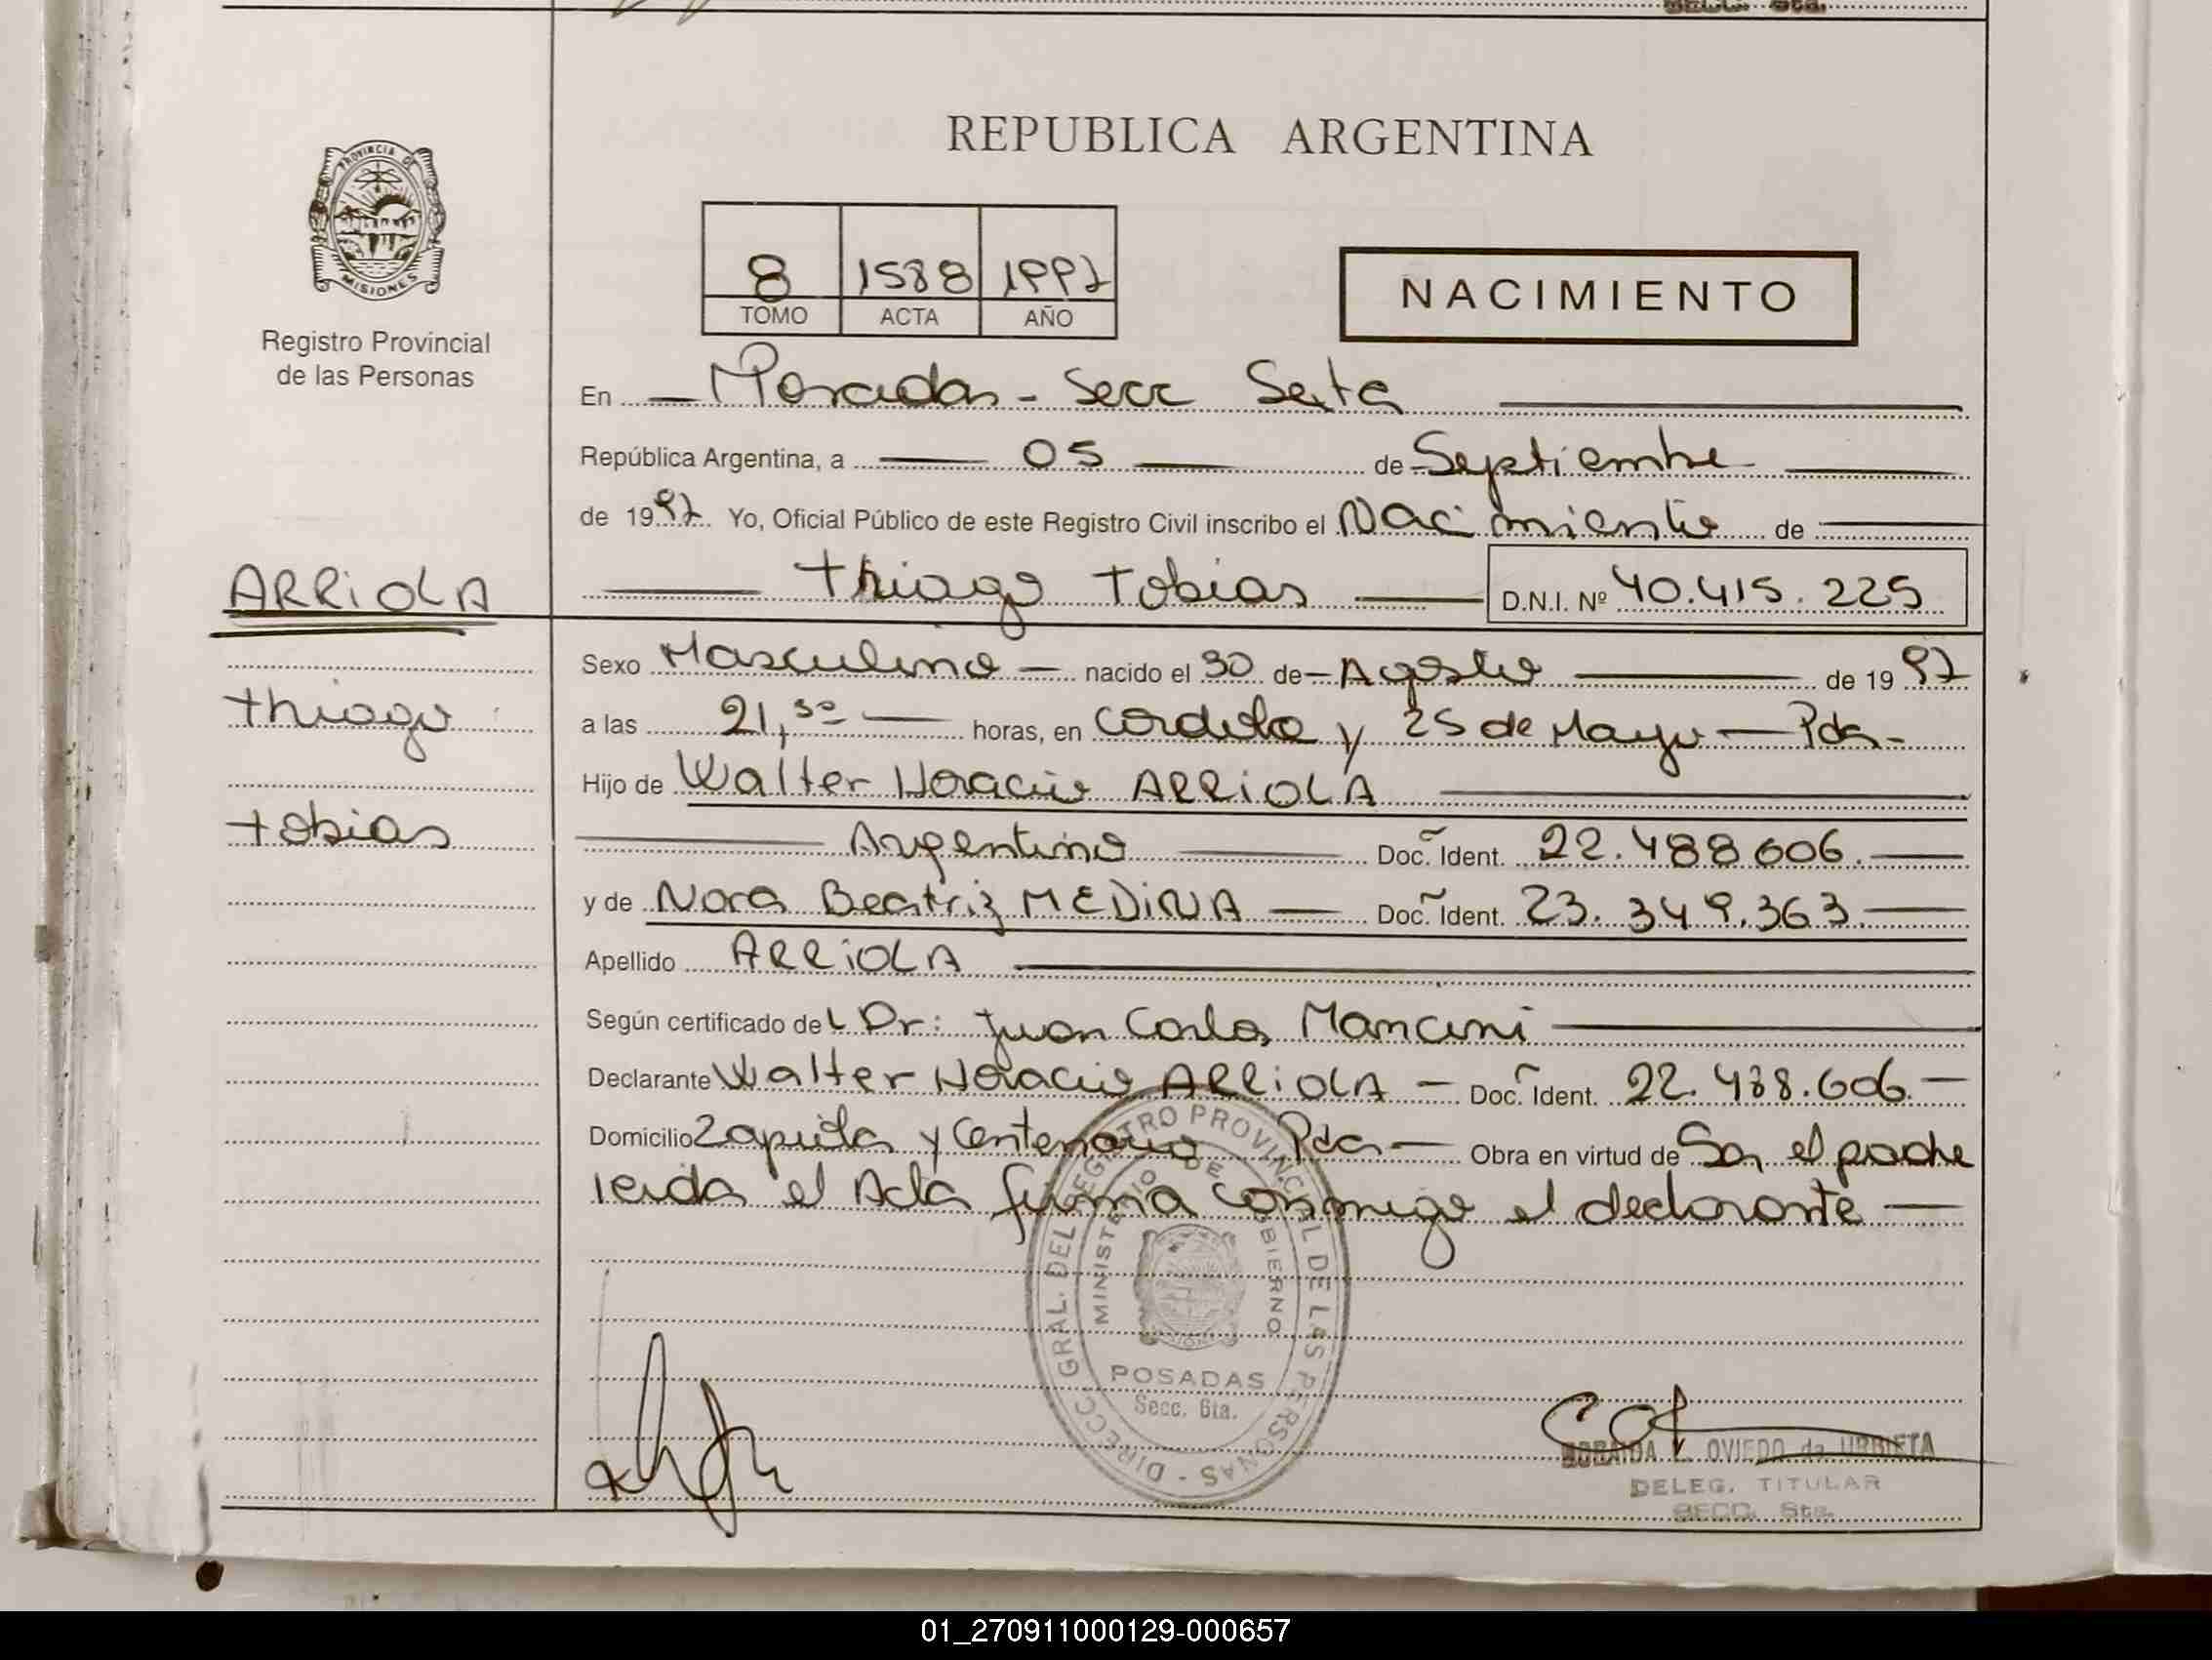 SECC. 6ta.
REPUBLICA ARGENTINA
PROVINCIA DE
MISIONES
Registro Provincial
de las Personas
8 1588 1997
TOMO ACTA AÑO
NACIMIENTO
En — Posadas - Secc Sexta —
República Argentina, a — 05 — de Septiembre —
de 1997 Yo, Oficial Público de este Registro Civil inscribo el Nacimiento de —
ARRIOLA
— Thiago Tobias — D.N.I. Nº 40.415.225
Sexo Masculino — nacido el 30 de — Agosto — de 1997
Thiago
a las 21,30 — horas, en Cordoba y 25 de Mayo — Pdas -
Hijo de Walter Horacio ARRIOLA —
Tobias
— Argentino — Doc. Ident. 22.488.606. —
y de Nora Beatriz MEDINA — Doc. Ident. 23.349.363 —
Apellido ARRIOLA —
Según certificado del Dr: Juan Carlos Mancini —
Declarante Walter Horacio ARRIOLA — Doc. Ident. 22.488.606. —
Domicilio Zapiola y Centenario Pdas — Obra en virtud de Ser el padre
leida el Acta firma conmigo el declarante —
DIRECC. GRAL. DEL REGISTRO PROVINCIAL DE LAS PERSONAS -
MINISTERIO DE GOBIERNO
POSADAS
Secc. 6ta.
OVIEDO de URBIETA
DELEG. TITULAR
SECC. 6ta.
01_270911000129-000657